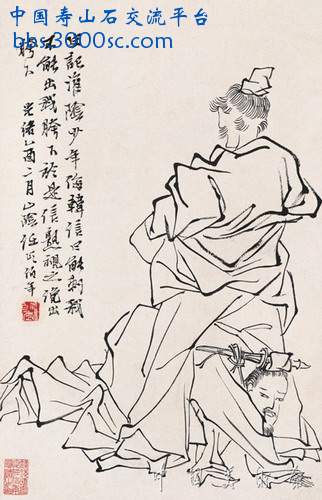 中国寿山石交流平台
bbs.3000sc.com
史記淮陰少年侮韓信曰能刺我
不能出我胯下於是信熟視之俛出
胯下 光緒乙酉二月山陰任頤伯年